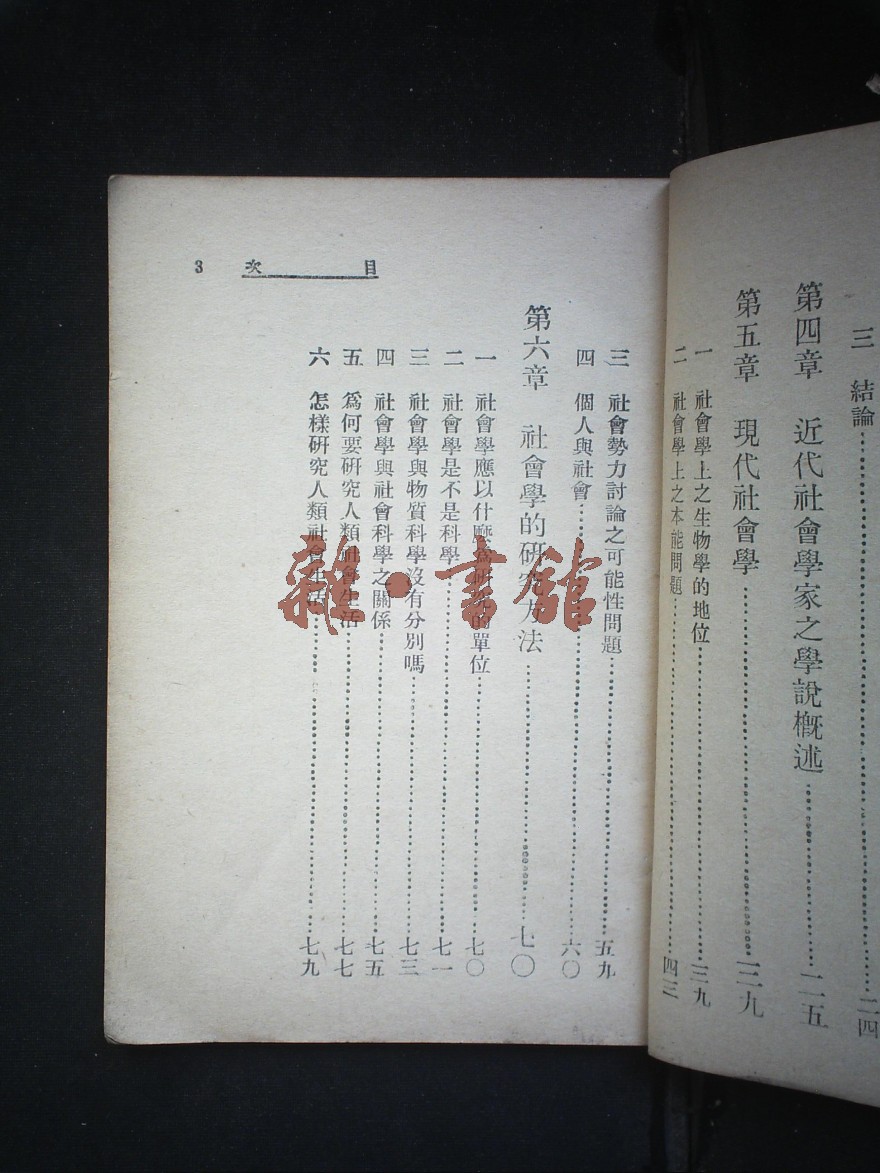 三 結論………二四
第四章 近代社會學家之學說概述………二五
第五章 現代社會學………三九
一 社會學上之生物學的地位………三九
二 社會學上之本能問題………四三
目次 3
三 社會勢力討論之可能性問題………五九
四 個人與社會………六〇
第六章 社會學的研究方法………七〇
一 社會學應以什麼為研究的單位………七〇
二 社會學是不是科學………七一
三 社會學與物質科學沒有分別嗎………七三
四 社會學與社會科學之關係………七五
五 爲何要研究人類社會生活………七七
六 怎樣研究人類社會生活………七九
雜·書館